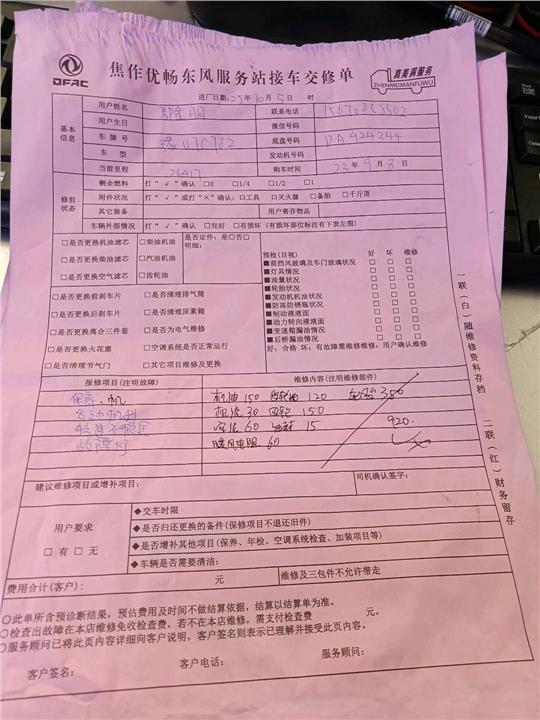 DFAC
焦作优畅东风服务站接车交修单
真美满服务
ZHENMEIMANFUWU
进厂日期:23年10月5日 时
基本信息
用户姓名 联系电话
用户生日 微信号码
车牌号 底盘号码 DA424244
车型 发动机号码
当前里程 26417 购车时间 22年9月8日
修前状态
剩余燃料 打“√”确认 □0 □1/4 □1/2 □1
附件状况 打“√”或打“×”确认:□工具 □灭火器 □备胎 □千斤顶
其它装备 用户寄存物品
车辆外部情况 打“√”确认 □完好 □有损坏(有损坏部位标注有下表左图)
□是否更换机油滤芯 □柴油机油 是否定件:是□否□
□是否更换柴油滤芯 □汽油机油 明细:
□是否更换空气滤芯 □齿轮油
□是否更换前刹车片 □是否清理排气筒
□是否更换后刹车片 □是否清理尿素箱
□是否更换离合三件套 □是否为电气维修
□是否更换火花塞 □空调系统是否正常运行
□是否清理节气门 □其它项目修及更换
预检(目视) 好 坏 维修
■前挡风玻璃及车门玻璃状况 □ □ □
■灯具情况 □ □ □
■油量状况 □ □ □
■轮胎状况 □ □ □
■发动机机油状况 □ □ □
■防冻防锈瓶状况 □ □ □
■制动液液面 □ □ □
■动力转向液液面 □ □ □
■变速箱漏油情况 □ □ □
■后桥漏油情况 □ □ □
好:合格 坏:有故障需维修维修:用户确认维修
报修项目(注明故障) 维修内容(注明维修部件)
保养、机 机油 150 齿轮油 120 350
机滤 30 150
60 15 920
故障灯 暖风电阻 60
建议维修项目或增补项目: 司机确认签字:
用户要求
□有 □无
◆交车时限
◆是否归还更换的备件(保修项目不退还旧件)
◆是否增补其他项目(保养、年检、空调系统检查、加装项目等)
◆车辆是否需要清洁:
费用合计(客户): 元 维修及三包件不允许带走
○此单所含预诊断结果,预估费用及时间不做结算依据,结算以结算单为准。
○检查出故障在本店维修免收检查费,若不在本店维修,需支付检查费 元。
○服务顾问已将此页内容详细向客户说明,客户签名则表示已理解并接受此页内容。
客户签名: 客户电话: 服务顾问:
一联(白)随维修资料存档
二联(红)财务留存